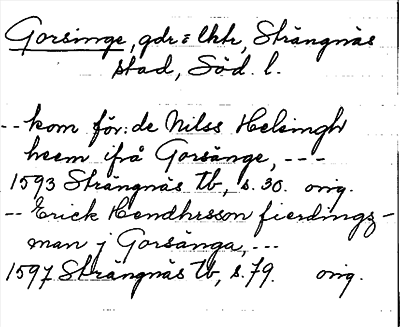 Gorsinge, gdr = lhtr, Strängnäs
stad, Söd. l.
-- kom för:de Nilss Helsingh
heem ifrå Gorsänge, ---
1593 Strängnäs tb, s. 30. orig.
-- Erick Hendhrsson fierdings-
man j Gorsänga, ---
1597 Strängnäs tb, s. 79. orig.